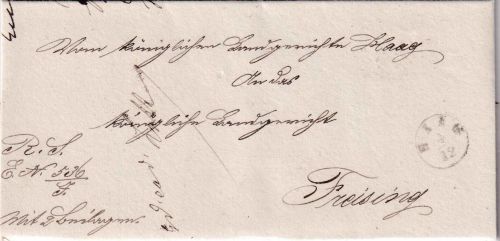 Vom königlichen Landgerichte Haag
An das
königliche Landgericht
Freising
R. S.
E. N. 536
F.
Mit 2 Beilagen.
HAAG
12